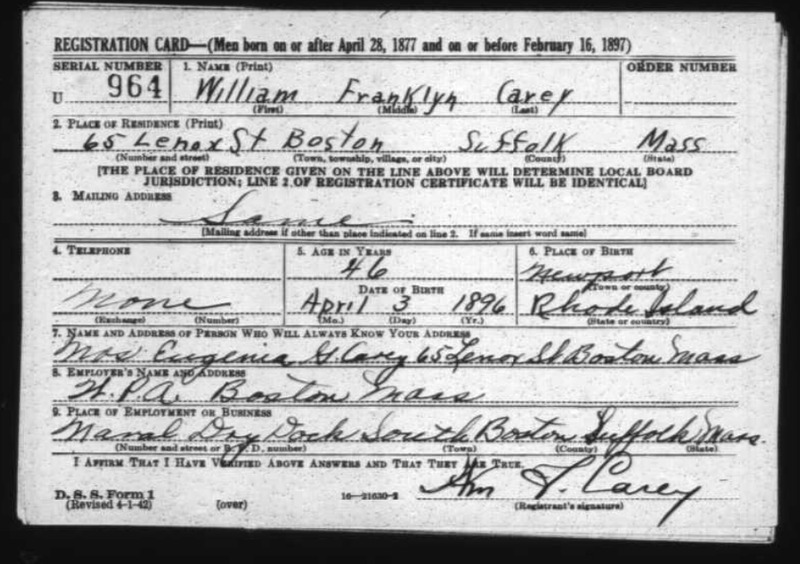 REGISTRATION CARD—(Men born on or after April 28, 1877 and on or before February 16, 1897)
SERIAL NUMBER 1. NAME (Print) ORDER NUMBER
U 964 William Franklyn Carey
(First) (Middle) (Last)
2. PLACE OF RESIDENCE (Print)
65 Lenox St Boston Suffolk Mass
(Number and street) (Town, township, village, or city) (County) (State)
[THE PLACE OF RESIDENCE GIVEN ON THE LINE ABOVE WILL DETERMINE LOCAL BOARD
JURISDICTION; LINE 2 OF REGISTRATION CERTIFICATE WILL BE IDENTICAL]
3. MAILING ADDRESS
Same
[Mailing address if other than place indicated on line 2. If same insert word same]
4. TELEPHONE 5. AGE IN YEARS 6. PLACE OF BIRTH
46 Newport
DATE OF BIRTH (Town or county)
None April 3 1896 Rhode Island
(Exchange) (Number) (Mo.) (Day) (Yr.) (State or country)
7. NAME AND ADDRESS OF PERSON WHO WILL ALWAYS KNOW YOUR ADDRESS
Mrs Eugenia G. Carey 65 Lenox St Boston Mass
8. EMPLOYER'S NAME AND ADDRESS
W.P.A. Boston Mass
9. PLACE OF EMPLOYMENT OR BUSINESS
Naval Dry Dock South Boston Suffolk Mass.
(Number and street or R. F. D. number) (Town) (County) (State)
I AFFIRM THAT I HAVE VERIFIED ABOVE ANSWERS AND THAT THEY ARE TRUE.
Wm F. Carey
D. S. S. Form 1
(Revised 4-1-42) (over) 16—21630-2 (Registrant's signature)